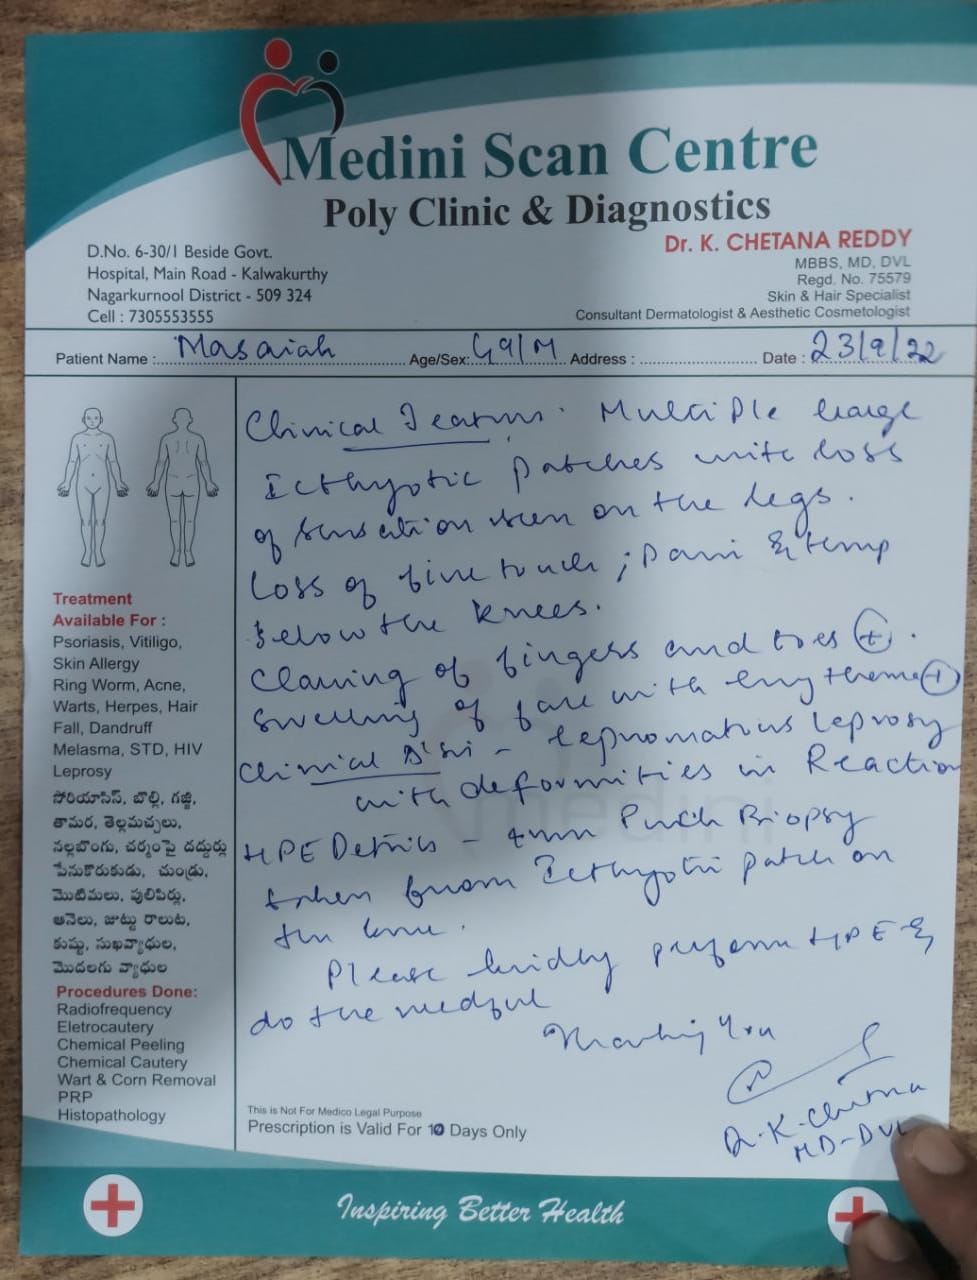 Medini Scan Centre
Poly Clinic & Diagnostics
D.No. 6-30/1 Beside Govt.
Hospital, Main Road - Kalwakurthy
Nagarkurnool District - 509 324
Cell : 7305553555
Dr. K. CHETANA REDDY
MBBS, MD, DVL
Regd. No. 75579
Skin & Hair Specialist
Consultant Dermatologist & Aesthetic Cosmetologist
Patient Name : Masaiah Age/Sex: 49/M Address : Date : 23/9/22
Clinical Features. Multiple large
Icthyotic patches with loss
of sensation seen on the legs.
Loss of fine touch ; Pain & temp
below the knees.
Clawing of fingers and toes (+).
Swelling of face with erythema (+)
Clinical - Lepromatous Leprosy
with deformities in Reaction
HPE Details - 4mm Punch Biopsy
taken from Icthyotic patch on
the knee.
Please kindly perform HPE &
do the needful
Thanking You
Dr. K. Chetna
MD-DVL
Treatment
Available For :
Psoriasis, Vitiligo,
Skin Allergy
Ring Worm, Acne,
Warts, Herpes, Hair
Fall, Dandruff
Melasma, STD, HIV
Leprosy
సోరియాసిస్, బొల్లి, గజ్జి,
తామర, తెల్లమచ్చలు,
నల్లబొంగు, చర్మంపై దద్దుర్లు
పేనుకొరుకుడు, చుండ్రు,
మొటిమలు, పులిపిర్లు,
ఆనెలు, జుట్టు రాలుట,
కుష్ఠు, సుఖవ్యాధుల,
మొదలగు వ్యాధుల
Procedures Done:
Radiofrequency
Eletrocautery
Chemical Peeling
Chemical Cautery
Wart & Corn Removal
PRP
Histopathology
medini
This is Not For Medico Legal Purpose
Prescription is Valid For 10 Days Only
Inspiring Better Health